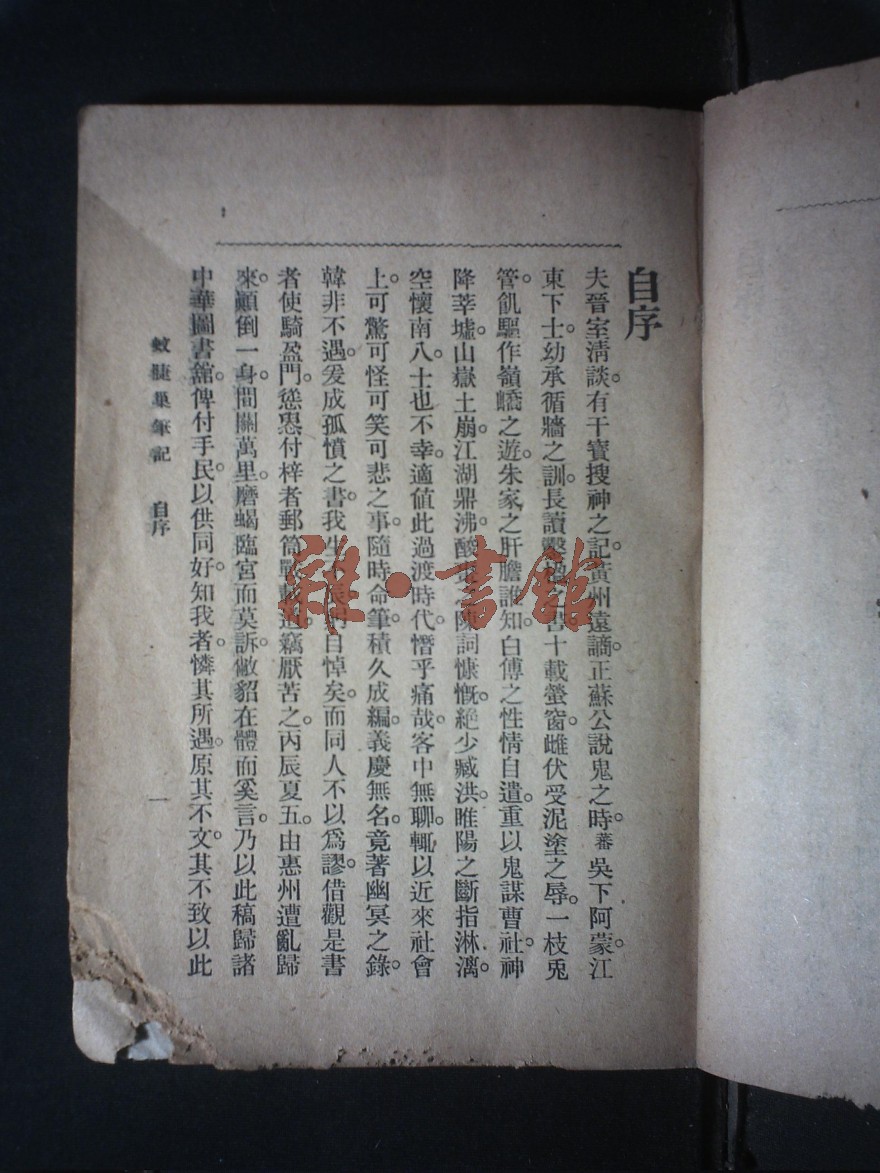 自序
夫晉室淸談。有干寶搜神之記。黃州遠謫。正蘇公說鬼之時。蕃吳下阿蒙。江
東下士。幼承循牆之訓。長讀擊之書。十載螢窗。雌伏受泥塗之辱。一枝兎
管。飢驅作嶺嶠之遊。朱家之肝膽誰知。白傅之性情自遣。重以鬼謀曹社。神
降莘墟。山嶽土崩。江湖鼎沸。酸之陳詞慷慨。絕少臧洪。睢陽之斷指淋漓。
空懷南八。士也不幸。適値此過渡時代。憯乎痛哉。客中無聊。輒以近來社會
上。可驚可怪可笑可悲之事。隨時命筆。積久成編。義慶無名。竟著幽冥之錄。
韓非不遇。爰成孤憤之書。我生不辰。自悼矣。而同人不以爲謬。借觀是書
者使騎盈門。慫恿付梓者郵筒載道。竊厭苦之。丙辰夏五。由惠州遭亂歸
來。顚倒一身。間關萬里。磨蝎臨宮而莫訴。敝貂在體而奚言。乃以此稿歸諸
中華圖書館。俾付手民。以供同好。知我者憐其所遇。原其不文。其不致以此
蚊睫巢筆記 自序 一
雜·書館